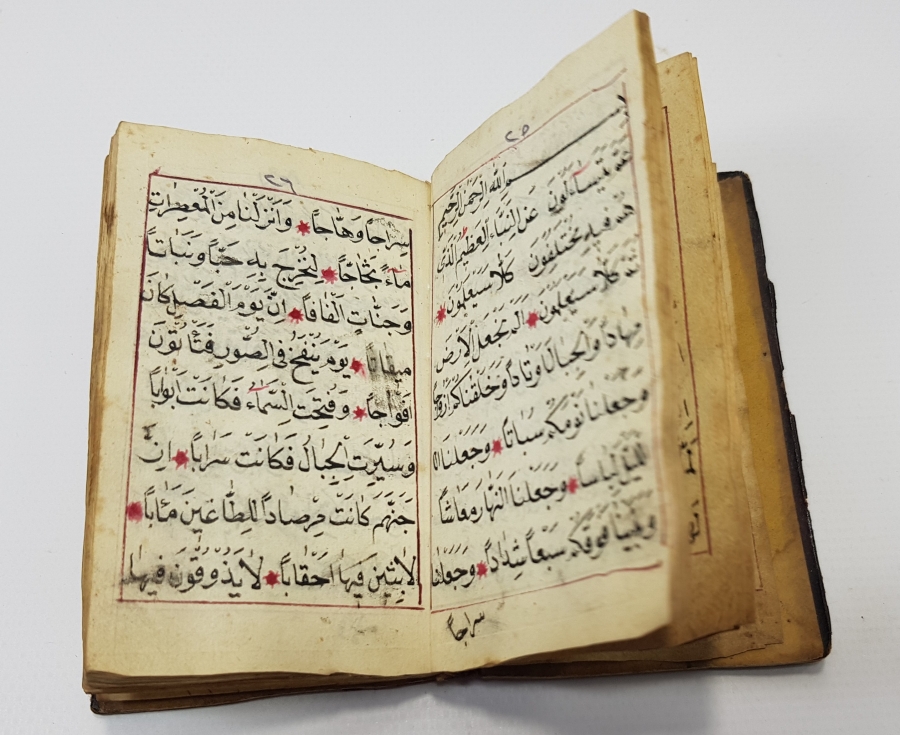 ٢٥
بِسْمِ اللهِ الرَّحْمٰنِ الرَّحِيمِ
عَمَّ يَتَسَاءَلُونَ عَنِ النَّبَاءِ الْعَظِيمِ الَّذِى
هُمْ فِيهِ مُخْتَلِفُونَ كَلَّا سَيَعْلَمُونَ *
ثُمَّ كَلَّا سَيَعْلَمُونَ * اَلَمْ نَجْعَلِ الْاَرْضَ
مِهَاداً وَالْجِبَالَ اَوْتَاداً وَخَلَقْنَاكُمْ اَزْوَاجاً
وَجَعَلْنَا نَوْمَكُمْ سُبَاتاً * وَجَعَلْنَا ا
للَّيْلَ لِبَاساً * وَجَعَلْنَا النَّهَارَ مَعَاشاً
وَبَنَيْنَا فَوْقَكُمْ سَبْعاً شِدَاداً * وَجَعَلْنَا
سراجاً
٢٦
سِرَاجاً وَهَّاجاً * وَاَنْزَلْنَا مِنَ الْمُعْصِرَاتِ
مَاءً ثَجَّاجاً * لِنُخْرِجَ بِهِ حَبّاً وَنَبَاتاً
وَجَنَّاتٍ اَلْفَافاً * اِنَّ يَوْمَ الْفَصْلِ كَانَ
مِيقَاتاً * يَوْمَ يُنْفَخُ فِى الصُّورِ فَتَاْتُونَ
اَفْوَاجاً * وَفُتِحَتِ السَّمَاءُ فَكَانَتْ اَبْوَاباً
وَسُيِّرَتِ الْجِبَالُ فَكَانَتْ سَرَاباً * اِنَّ
جَهَنَّمَ كَانَتْ مِرْصَاداً لِلطَّاغِينَ مَاٰباً *
لَابِثِينَ فِيهَا اَحْقَاباً * لَا يَذُوقُونَ فِيهَا